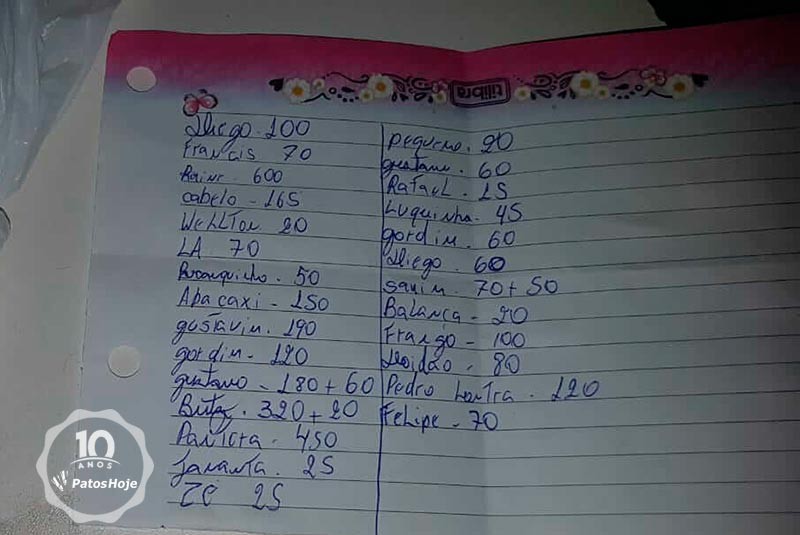 tilibra
Diego. 100
Francis 70
Rainr. 600
cabelo - 165
Wehlton 20
LA. 70
50
Abacaxi - 150
gustavin. 190
gordin - 120
gustavo - 180 + 60
320 + 20
Pantera. 450
Jaranta. 25
ZÉ 25
pequeno. 20
gustavo. 60
Rafael. 15
Luquinha. 45
gordin. 60
Diego. 60
sanin. 70 + 50
Balança - 20
Frango - 100
Doidão. 80
Pedro Lontra. 120
Felipe. 70
10
ANOS
PatosHoje